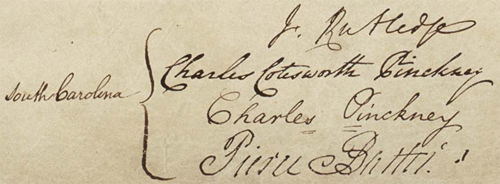 J. Rutledge
South Carolina
Charles Cotesworth Pinckney
Charles Pinckney
Pierce Butler.